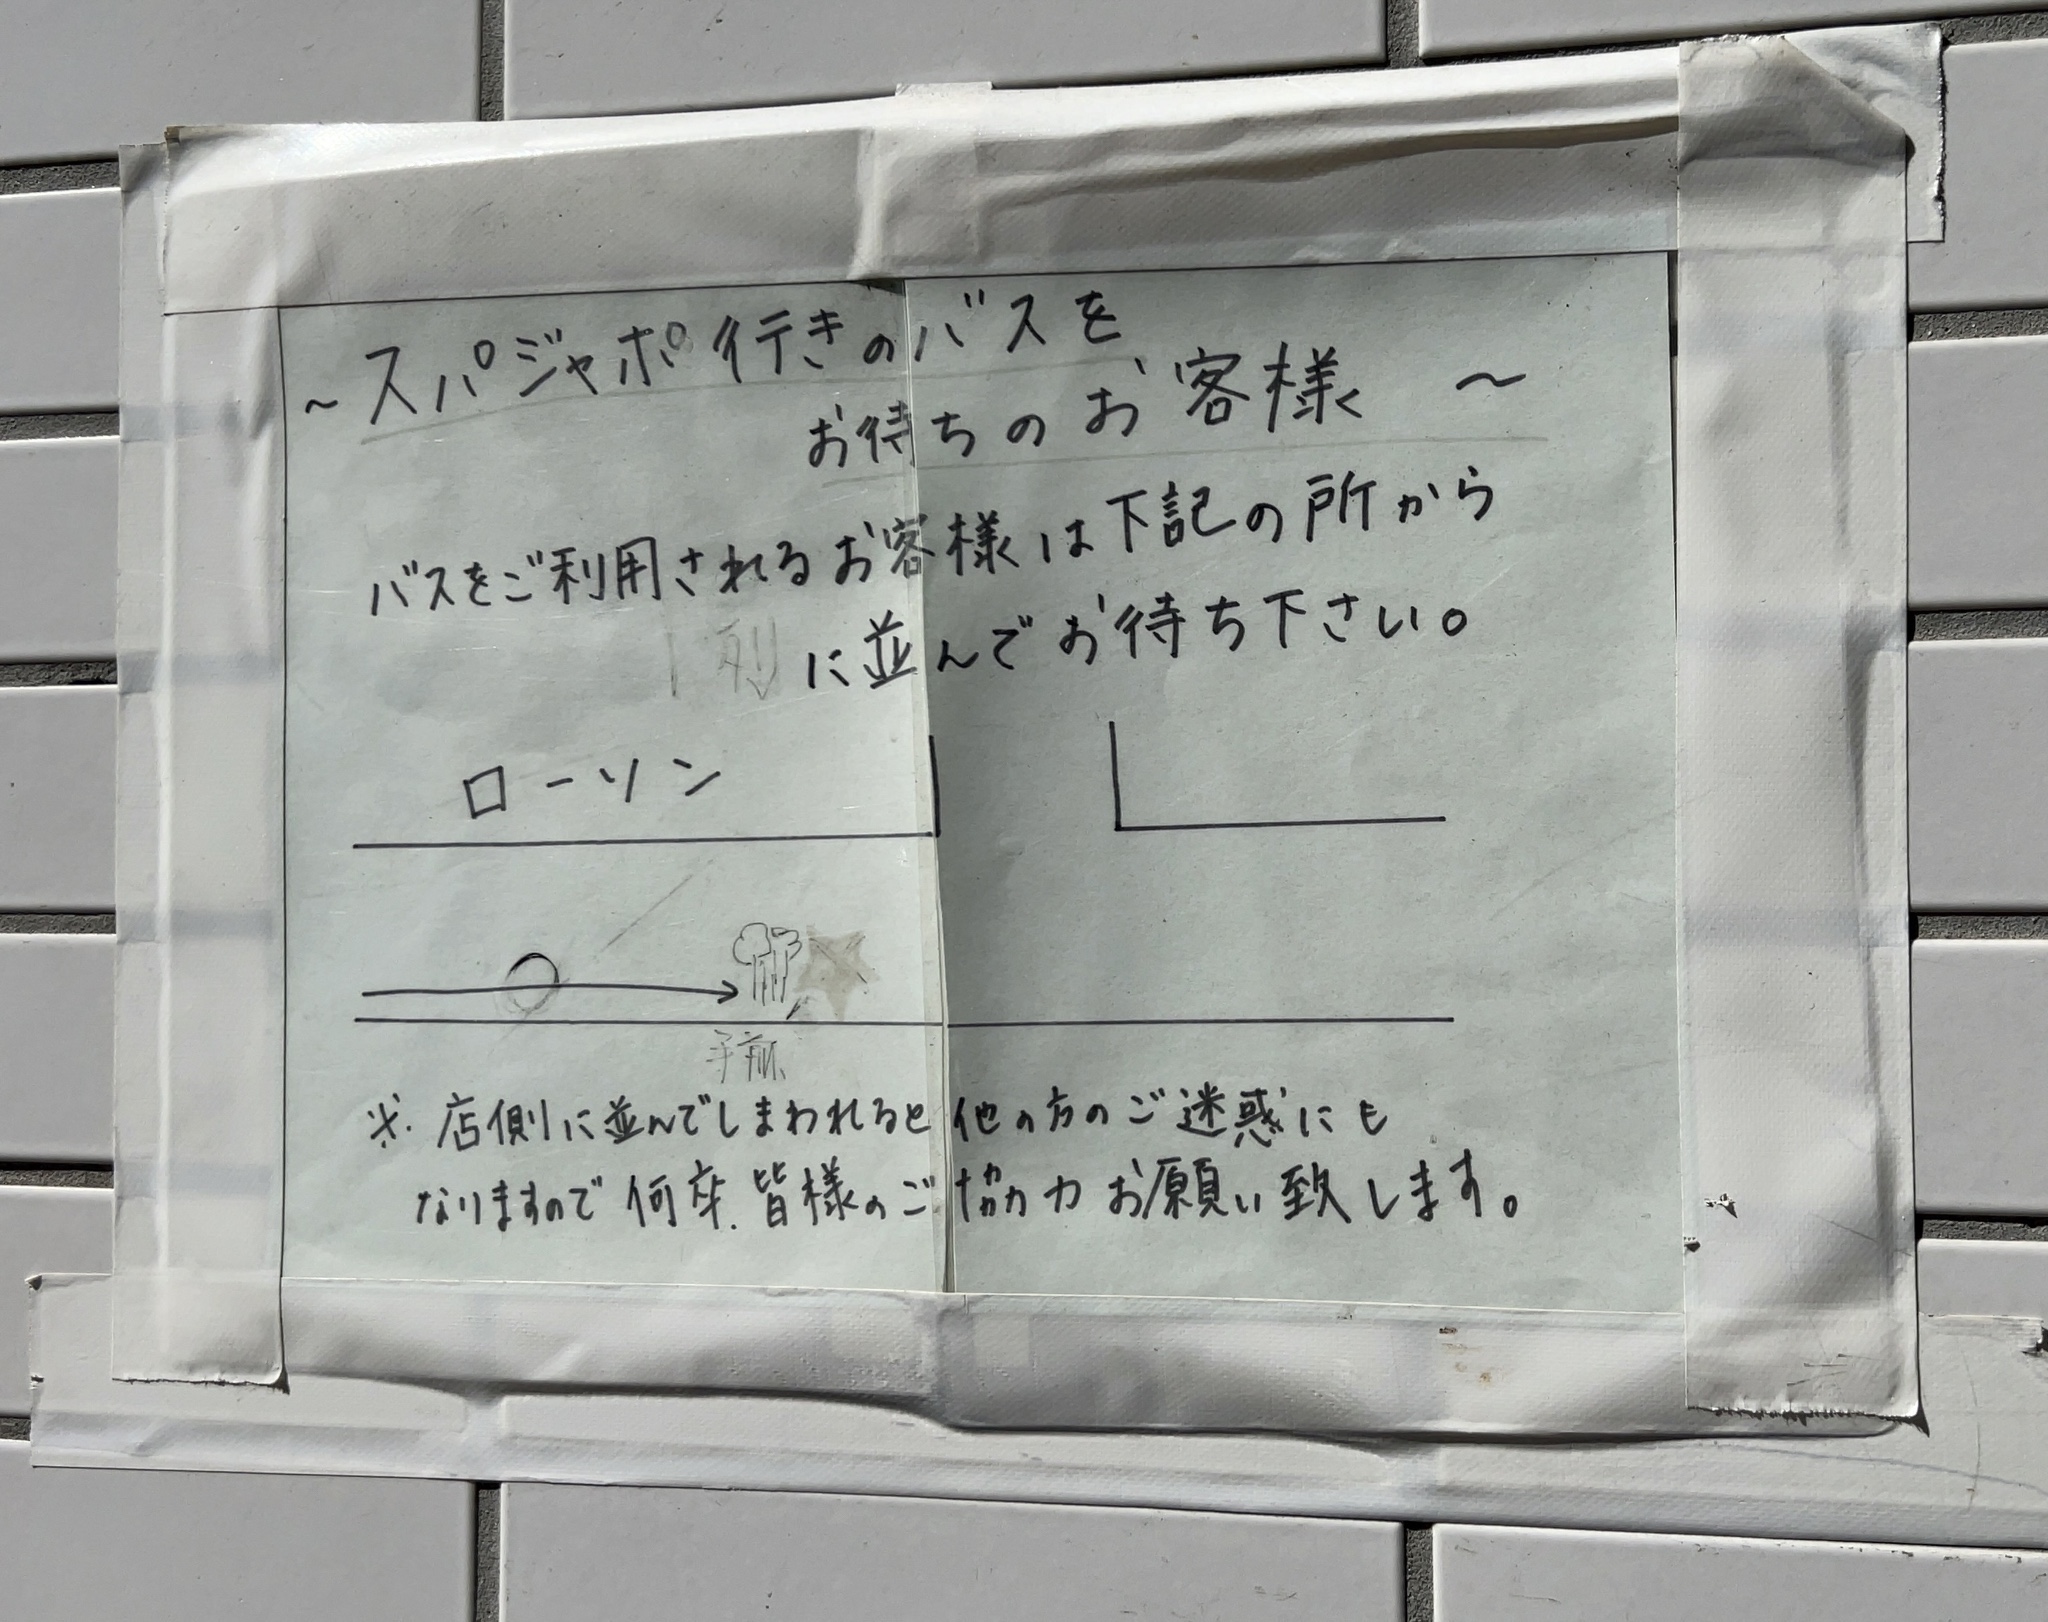 ～スパジャポ行きのバスを
お待ちのお客様 ～
バスをご利用されるお客様は下記の所から
1列に並んでお待ち下さい。
ローソン
手前
※. 店側に並んでしまわれると他の方のご迷惑にも
なりますので何卒.皆様のご協力お願い致します。